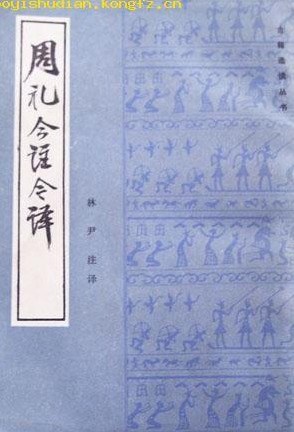 boyishudian.kongfz.cn
周礼今註今译
林尹 注译
古籍选读丛书